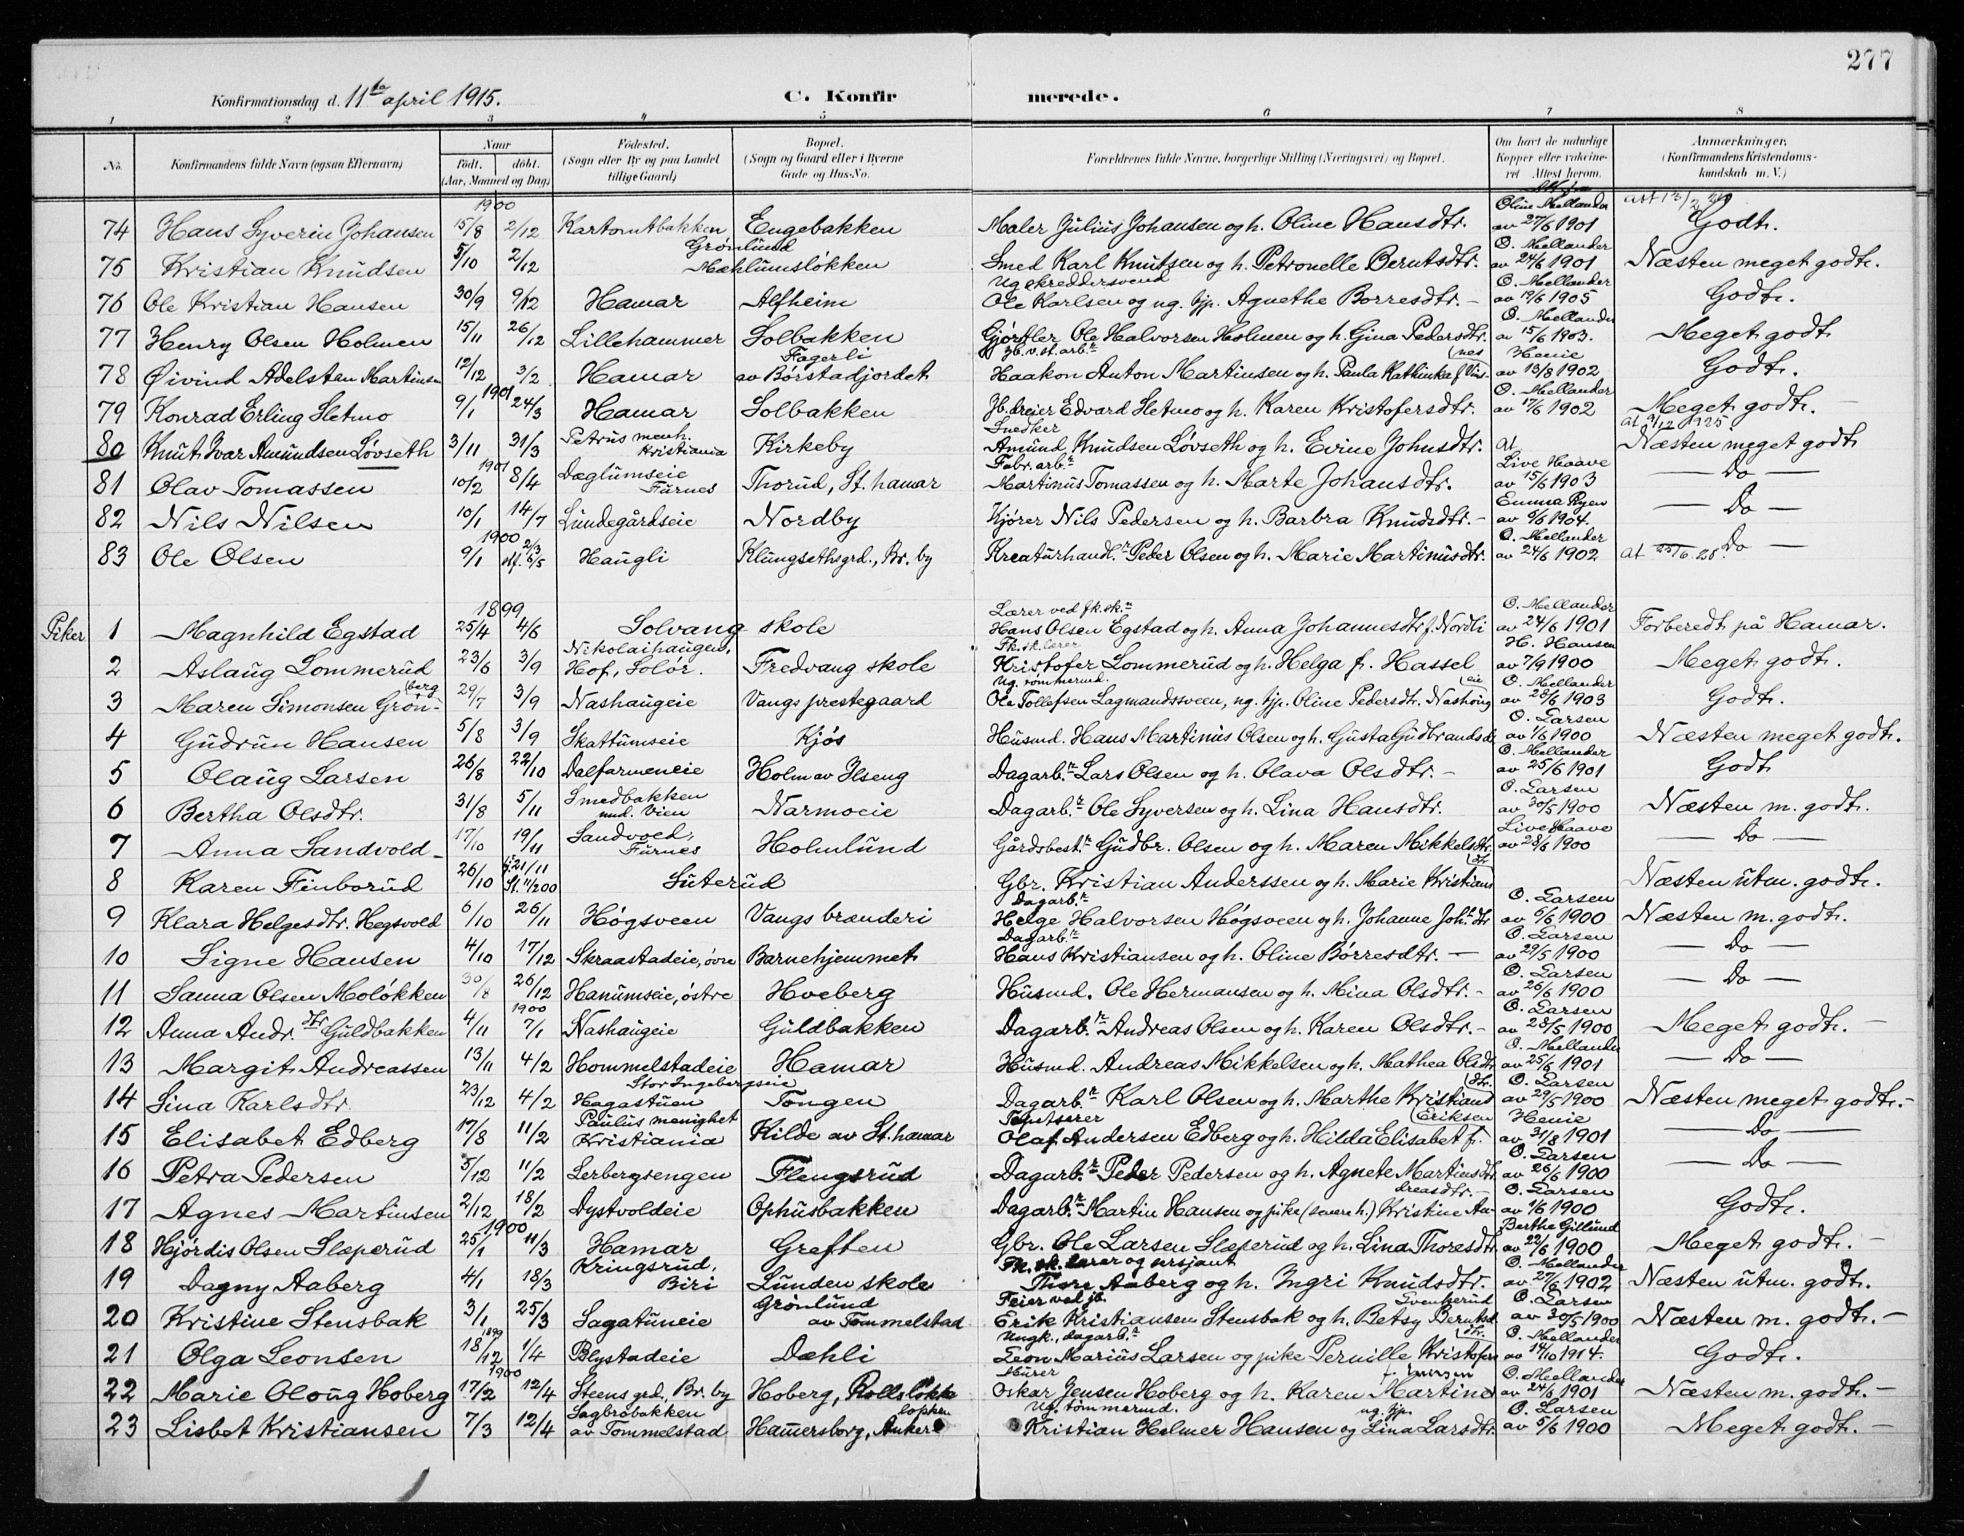 277
Konfirmationsdag d. 11te april 1915. C. Konfirmerede.
1 2 3 4 5 6 7 8
No. Konfirmandens fulde Navn (ogsaa Efternavn) Naar født. døbt. (Aar, Maaned og Dag) Fødested. (Sogn eller By og paa Landet tillige Gaard) Bopæl. (Sogn og Gaard eller i Byerne Gade og Hus-No. Forældrenes fulde Navne, borgerlige Stilling (Næringsvei) og Bopæl. Om havt de naturlige Kopper eller vakcineret. Attest herom. Anmærkninger. (Konfirmandens Kristendomskundskab m. V.)
1900
74 Hans Syverin Johansen 15/8 2/12 Engebakken Maler Julius Johansen og h. Oline Hansdtr. av 27/6 1901 Godt.
75 Kristian Knudsen 5/10 2/12 Grønlund Mæhlumsløkken Smed Karl Knutsen og h. Petronelle Berntsdtr. O. Mellander av 24/6 1901 Næsten meget godt.
76 Ole Kristian Hansen 30/9 9/12 Hamar Alfheim Ug. skreddersvend Ole Karlsen og ug. tjp. Agnethe Borresdtr. - O. Mellander av 19/6 1905 Godt.
77 Henry Olsen Holmen 15/11 26/12 Lillehammer Solbakken Gjørtler Ole Halvorsen Holmen og h. Gina Pedersdtr. O. Mellander av 15/6 1903. Meget godt.
78 Øivind Adelsten Martinsen 12/12 3/2 Hamar Fagerli av Børstadjordet Jb.v.st.arb.r Haakon Anton Martinsen og h. Paula Kathinka f. Vinsnes Henie av 13/8 1902 Godt.
1901
79 Konrad Erling Sletmo 9/1 24/3 Hamar Solbakken Edvard Sletmo og h. Karen Kristofersdtr. O. Mellander av 17/6 1902 Meget godt. -
80 Knut Ivar Amundsen Løvseth 3/11 31/3 Petrus menh. Kristiania Kirkeby Snedker Amund Knudsen Løvseth og h. Evine Johnsdtr. at Næsten meget godt
1901
81 Olav Tomassen 10/2 8/4 Dæglumseie Furnes Thorud, St. hamar Fabr. arb.r Martinus Tomassen og h. Marte Johansdtr. Live Haave av 15/6 1903 — Do —
82 Nils Nilsen 10/1 14/7 Lundegårdseie Nordby Kjører Nils Pedersen og h. Barbra Knudsdtr. - Emma Ryen av 6/6 1904. — Do —
1900
83 Ole Olsen 9/1 2/3 stf. 6/5 Haugli Klungsethsgrd., Br. by Kreaturhandl.r Peder Olsen og h. Marie Martinusdtr. O. Mellander av 24/6 1902 at 25/6. 28. Do —
1899
Piker 1 Magnhild Egstad 25/4 4/6 Solvang skole Lærer ved fk.sk.n Hans Olsen Egstad og h. Anna Johannesdtr. f. Nordli O. Mellander av 24/6 1901 Forberedt på Hamar.
2 Aslaug Lommerud 23/6 3/9 Nikolaihaugen, Hof, Solør. Fredvang skole Fk. sk. lærer Kristofer Lommerud og h. Helga f. Hassel H. Hansen av 7/9 1900 Meget godt.
3 Maren Simonsen Grønberg 29/7 3/9 Nashaugeie Vangs prestegaard Ug. tømmermd. Ole Tollefsen Lagmandssveen, ug. tjp. Oline Pedersdtr. Nashougeie O. Mellander av 28/6 1903 Godt.
4 Gudrun Hansen 5/8 3/9 Skattumseie Kjos Husmd. Hans Martinus Olsen og h. Gusta Gudbrandsd. O. Larsen av 1/6 1900 Næsten meget godt.
5 Olaug Larsen 26/8 22/10 Dalfarmeneie Holm av Ilseng Dagarb.r Lars Olsen og h. Olava Olsdtr. - O. Mellander av 25/6 1901 Godt
6 Bertha Olsdtr. 31/8 5/11 Smedbakken und. Vien Narmoeie Dagarb.r Ole Syversen og h. Lina Hansdtr. O. Larsen av 30/5 1900 Næsten m. godt.
7 Anna Sandvold - 17/10 19/11 Sandvold, Furnes Holmlund Gårdsbest.r Gudbr. Olsen og h. Maren Mikkelsdtr. Live Haave av 28/6 1900 — Do —
8 Karen Finborud 26/10 21/11 St. 11/2 00 Suterud Gbr. Kristian Anderssen og h. Marie Kristiansdtr. Næsten utm. godt.
9 Klara Helgesdtr. Hegsvold 6/10 26/11 Høgsveen Vangs brænderi Dagarb.r Helge Halvorsen Høgsveen og h. Johanne Joh.s dtr O. Larsen av 6/6 1900 Næsten m. godt.
10 Signe Hansen 4/10 17/12 Skraastadeie, øvre Barnehjemmet Dagarb.r Hans Kristiansen og h. Oline Børresdtr. — O. Larsen av 29/5 1900 — Do —
11 Sanna Olsen Moløkken 30/8 26/12 Hanumseie, østre Hveberg Husmd. Ole Hermansen og h. Mina Olsdtr. - O. Larsen av 26/6 1900 — Do —
1900
12 Anna Andr.dtr Guldbakken 4/11 7/1 Nashaugeie Guldbakken Dagarb.r Andreas Olsen og h. Karen Olsdtr. - O. Larsen av 28/5 1900 Meget godt. -
13 Margit Andreassen 13/11 4/2 Hommelstadeie Hamar Husmd. Andreas Mikkelsen og h. Mathea Olsdtr O. Mellander av 25/6 1901 — Do —
14 Lina Karlsdtr. 23/12 4/2 Stor Ingebergseie Hagastuen Tongen Dagarb.r Karl Olsen og h. Marthe Kristiansdtr. O. Larsen av 29/5 1900 Næsten meget godt. -
15 Elisabet Edberg 17/8 11/2 Paulus menighet Kristiania Kilde av St. hamar Olaf Andersen Edberg og h. Hilda Elisabet f. Eriksen Henie av 31/8 1901 — Do —
16 Petra Pedersen 5/12 11/2 Lerbergsengen Flengsrud Dagarb.r Peder Pedersen og h. Agnete Martinsdtr O. Larsen av 26/6 1900 — Do —
17 Agnes Martinsen 2/12 18/2 Dystvoldeie Ophusbakken Dagarb.r Martin Hansen og pike (senere h.) Kristine Andreasdtr. - O. Larsen av 1/6 1900 Godt.
1900
18 Hjørdis Olsen Slæperud 25/1 11/3 Hamar Greften Gbr. Ole Larsen Slæperud og h. Lina Thoresdtr. Berthe Gillund av 22/6 1900 Meget godt. -
19 Dagny Aaberg 4/1 18/3 Kringsrud, Biri Lunden skole Fk. sk. lærer og ersjant Thore Aaberg og h. Ingri Knudsdtr. O. Mellander av 27/6 1902 Næsten utm. godt.
20 Kristine Stensbak 3/1 25/3 Sagatuneie Grønlund av Tommelstad Feier ved jb. Erik Kristiansen Stensbak og h. Betsy Berntsd. Svenkerud O. Larsen av 30/5 1900 Næsten m. godt. -
1899
21 Olga Leonsen 18/12 1/4 Blystadeie Dæhli Ungk., dagarb.r Leon Marius Larsen og pike Pernille Kristofersdtr. O. Mellander av 14/10 1914. Godt.
1900
22 Marie Oloug Hoberg 17/2 12/4 Steens grd, Br. by Hoberg, Rollsløkken Murer Oskar Jensen Hoberg og h. Karen Martine O. Mellander av 24/6 1901 Næsten m. godt. -
23 Lisbet Kristiansen 7/3 12/4 Sagbrobakken av Tommelstad Hammersborg, Ankerløkken Ug. tømmermd. Kristian Helmer Hansen og ug. tjp. Lina Larsdtr. O. Larsen av 5/6 1900 Meget godt. -